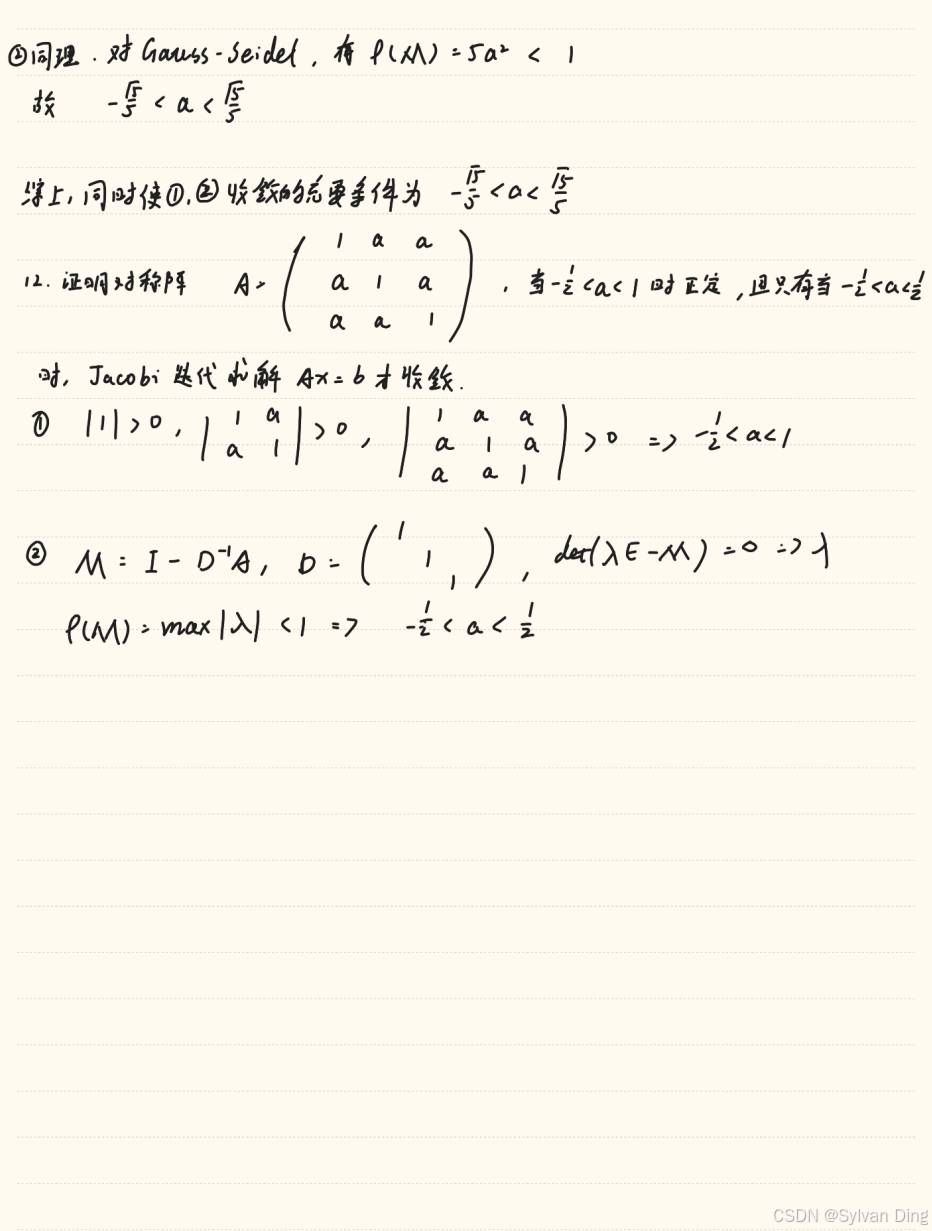 ②同理. 对 Gauss-Seidel, 有 ρ(M) = 5a² < 1
故 -√5/5 < a < √5/5
综上, 同时使①,②收敛的充要条件为 -√5/5 < a < √5/5
12. 证明对称阵 A = ( 1 a a ; a 1 a ; a a 1 ) , 当 -1/2 < a < 1 时正定, 且只有当 -1/2 < a < 1/2
时, Jacobi 迭代求解 Ax = b 才收敛.
① |1| > 0, | 1 a ; a 1 | > 0, | 1 a a ; a 1 a ; a a 1 | > 0 => -1/2 < a < 1
② M = I - D⁻¹A, D = ( 1 ; 1 ; 1 ) , det(λE - M) = 0 => λ
ρ(M) = max|λ| < 1 => -1/2 < a < 1/2
CSDN @Sylvan Ding